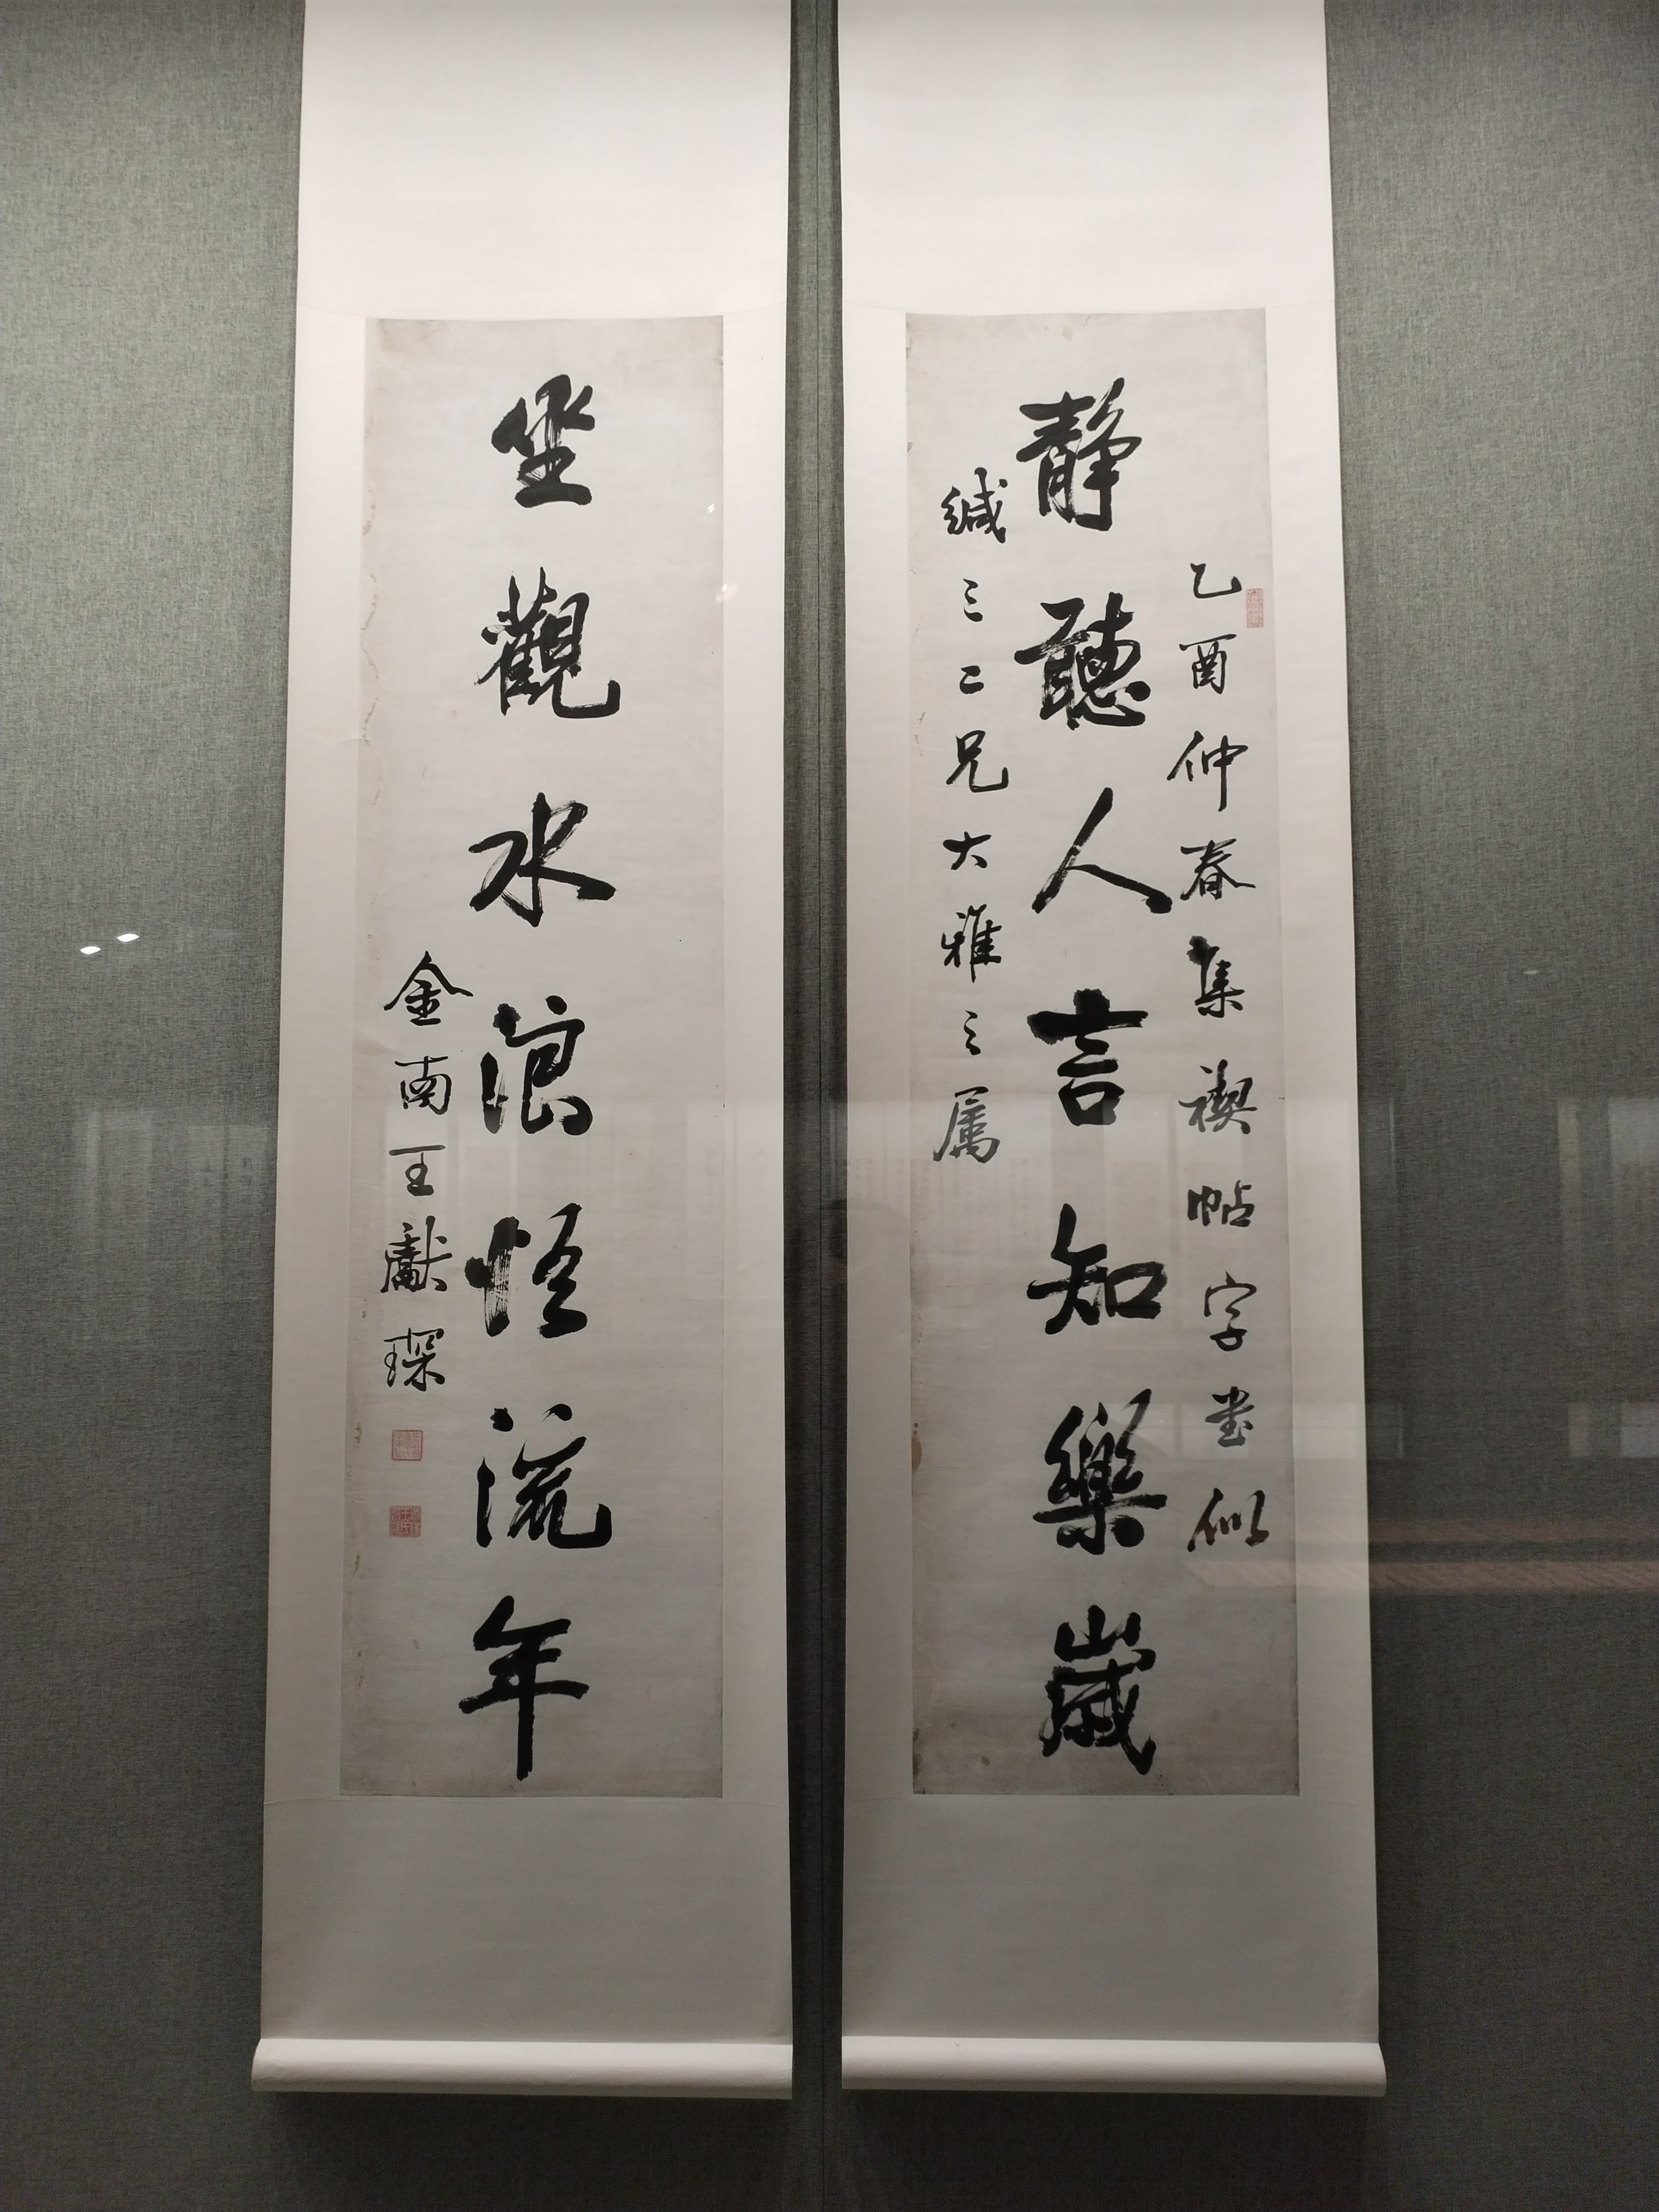 乙酉仲春集禊帖字書似
靜聽人言知樂歲
緘三二兄大雅之属
坐觀水浪悟流年
金南王獻琛